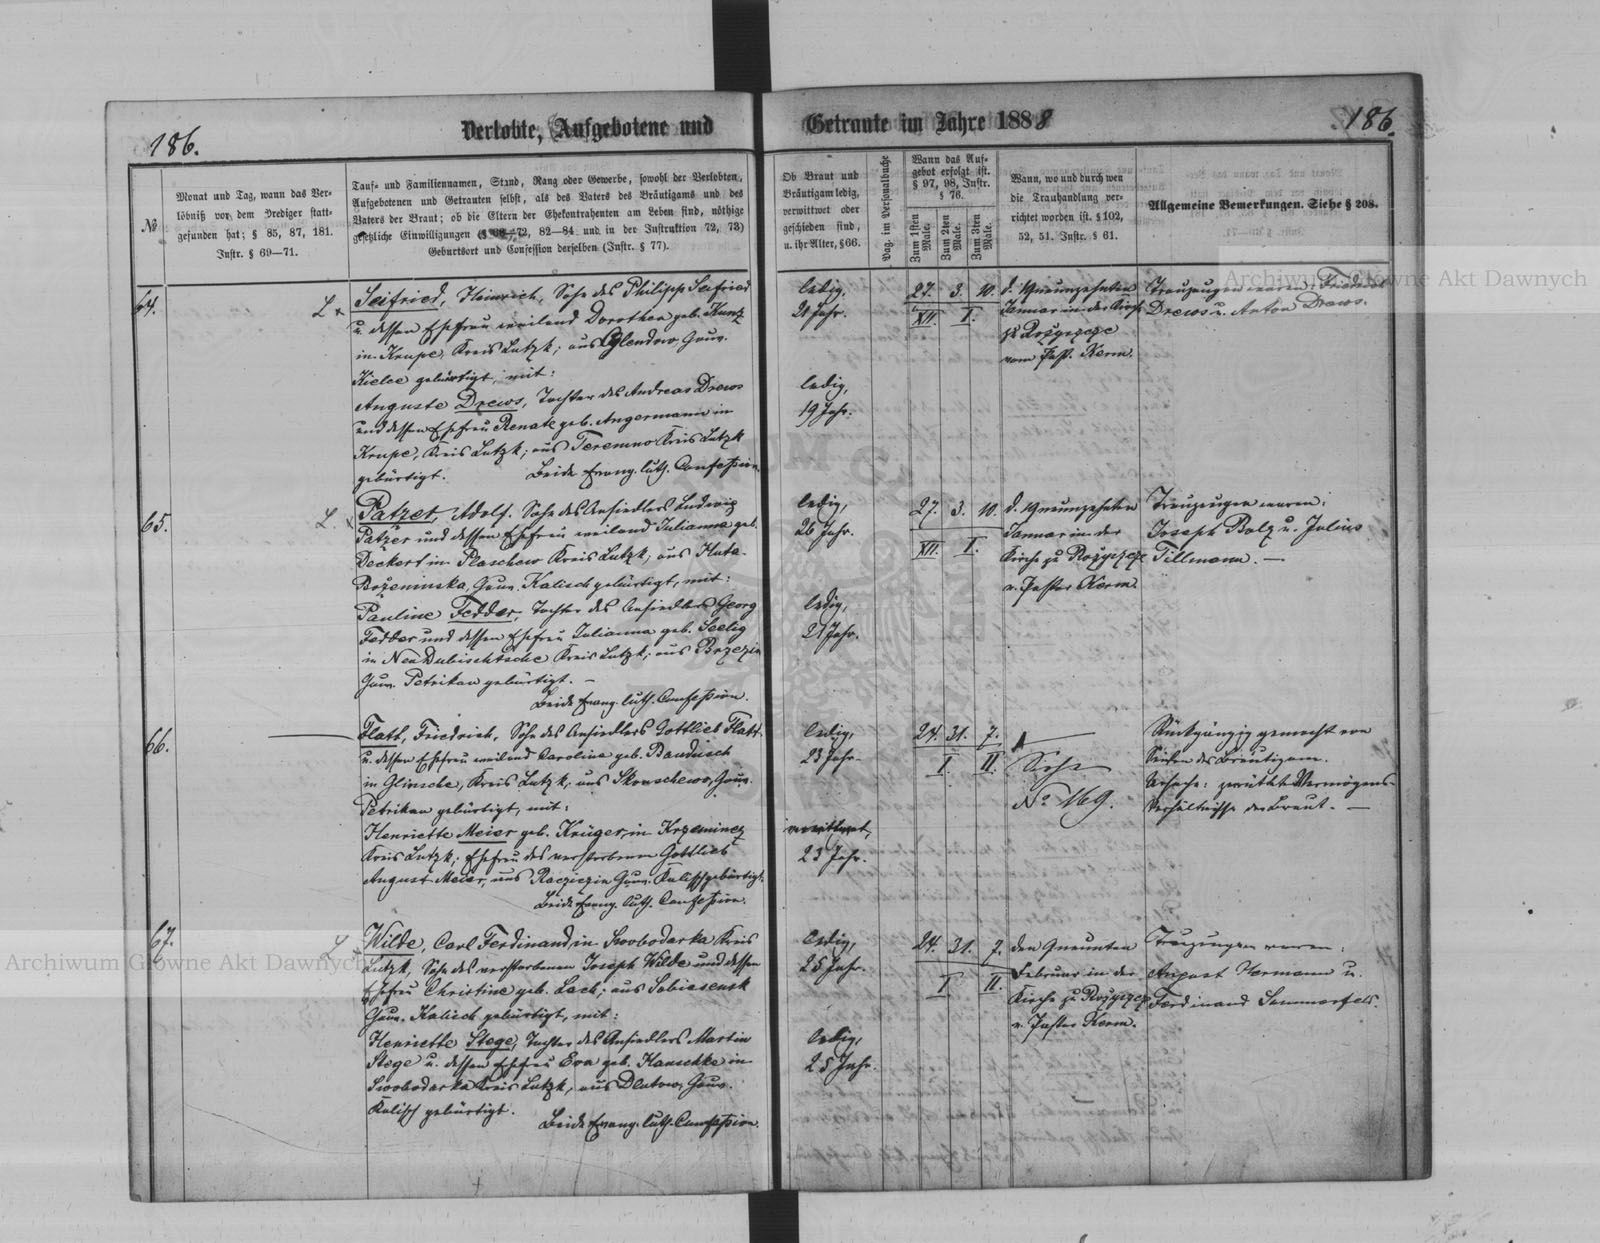 186.
Verlobte, Aufgebotene und
Getraute im Jahre 1888
186.
№
Monat und Tag, wann das Ver-
löbniß vor dem Prediger statt-
gefunden hat; § 85, 87, 181.
Instr. § 69—71.
Tauf- und Familiennamen, Stand, Rang oder Gewerbe, sowohl der Verlobten,
Aufgebotenen und Getrauten selbst, als des Vaters des Bräutigams und des
Vaters der Braut; ob die Eltern der Ehekontrahenten am Leben sind, nöthige
gesetzliche Einwilligungen 72, 82—84 und in der Instruktion 72, 73)
Geburtsort und Confession derselben (Instr. § 77).
Ob Braut und
Bräutigam ledig,
verwittwet oder
geschieden sind,
u. ihr Alter, §66.
Pag. im Personalbuche
Wann das Auf-
gebot erfolgt ist.
§ 97, 98, Instr.
§ 76.
Zum 1sten
Male.
Zum 2ten
Male.
Zum 3ten
Male.
Wann, wo und durch wen
die Trauhandlung ver-
richtet worden ist. § 102,
52, 51. Instr. § 61.
Allgemeine Bemerkungen. Siehe § 208.
64.
Seifried, Heinrich, Sohn des Philipp Seifried
u. dessen Ehefrau weiland Dorothea geb. Kuntz
in Krupe, Kreis Lutzk; aus Gouv.
Kielce gebürtigt, mit:
Auguste Drews, Tochter des Andreas Drews
und dessen Ehefrau Renate geb. Angermann in
Krupe, Kreis Lutzk; aus Teremno Kreis Lutzk
gebürtigt. Beide Evang. luth. Confession.
ledig,
21 Jahr.
ledig,
19 Jahr.
27. 3. 10.
XII. I.
d. 19 neunzehnten
Januar in der Kirche
zu Rożyszcze
vom Past. Kerm.
Trauzeugen waren: Friedrich
Drews u. Anton Drews.
65.
Patzer, Adolf, Sohn des Ansiedlers Ludwig
Patzer und dessen Ehefrau weiland Julianna geb.
Deckert in Plaschew Kreis Lutzk; aus Huta-
Bożeminska, Gouv. Kalisch gebürtigt, mit:
Pauline Fedder, Tochter des Ansiedlers Georg
Fedder und dessen Ehefrau Julianna geb. Seelig
in Neu Dubischtsche Kreis Lutzk; aus Brzezin
Gouv. Petrikau gebürtigt. —
Beide Evang. luth. Confession.
ledig,
26 Jahr.
ledig,
21 Jahr.
27. 3. 10.
XII. I.
d. 19 neunzehnten
Januar in der
Kirche zu Rożyszcze
v. Pastor Kerm.
Trauzeugen waren:
Joseph Bolz u. Julius
Tillmann. —
66.
Flatt, Friedrich, Sohn des Ansiedlers Gottlieb Flatt
u. dessen Ehefrau weiland Caroline geb. Baudisch
in Glinsche, Kreis Lutzk, aus Gouv.
Petrikau gebürtigt, mit:
Henriette Meier geb. Krüger, in Krzeminez
Kreis Lutzk; Ehefrau des verstorbenen Gottlieb
August Meier, aus Gouv. Kalisch gebürtigt.
Beide Evang. luth. Confession.
ledig,
23 Jahr.
verwittwet,
23 Jahr.
24. 31. 7.
I. II.
Siehe
No 169.
Rückgängig gemacht von
Seiten des Bräutigam.
Ursache: zerrüttete Vermögens-
verhältnisse der Braut. —
67.
Wilde, Carl Ferdinand, in Swobodarka Kreis
Lutzk, Sohn des verstorbenen Joseph Wilde und dessen
Ehefrau Christine geb. Lach; aus Sobiesensk
Gouv. Kalisch gebürtigt, mit:
Henriette Stege, Tochter des Ansiedlers Martin
Stege u. dessen Ehefrau Eva geb. Hanschke in
Swobodarka Kreis Lutzk, aus Dlutow, Gouv.
Kalisch gebürtigt.
Beide Evang. luth. Confession.
ledig,
25 Jahr.
ledig,
25 Jahr.
24. 31. 7.
I. II.
den 9 neunten
Februar in der
Kirche zu Rożyszcze
v. Pastor Kerm.
Trauzeugen waren:
August Hermann u.
Ferdinand
Archiwum Główne Akt Dawnych
Archiwum Główne Akt Dawnych